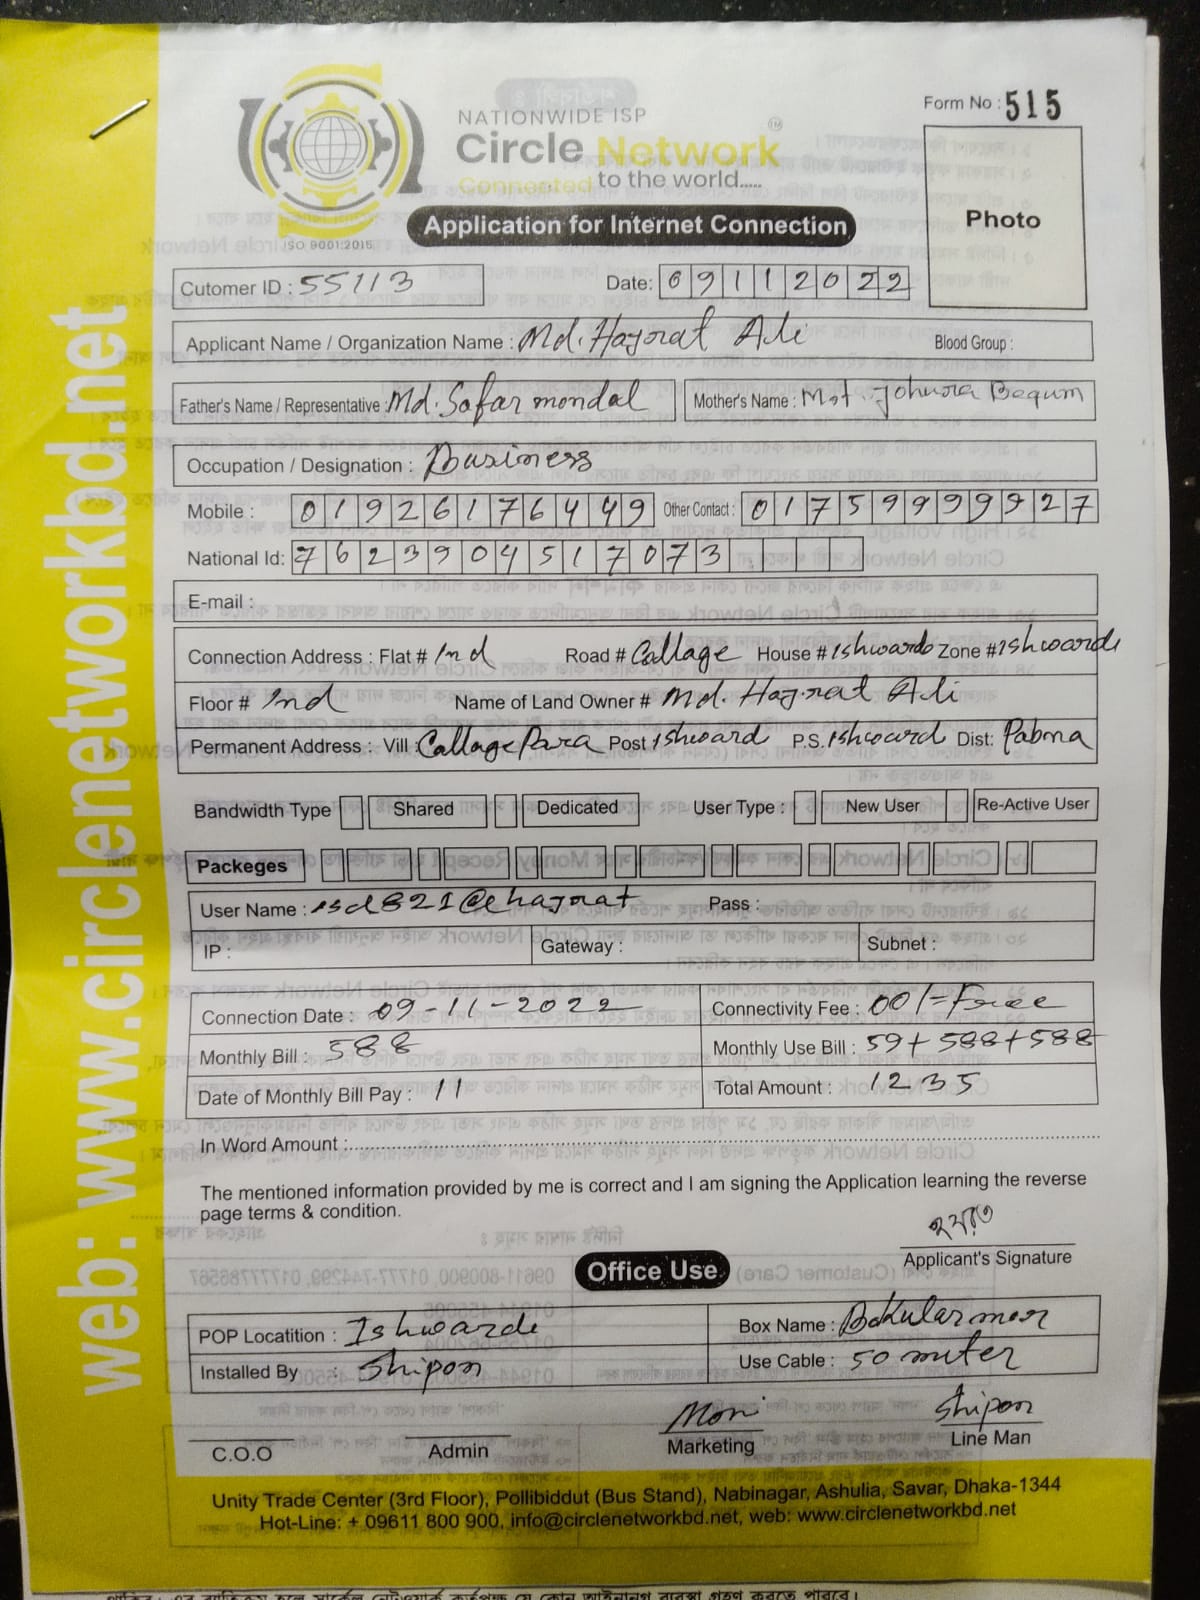 NATIONWIDE ISP
Circle Network TM
Connected to the world.....
ISO 9001:2015
Form No : 515
Photo
Application for Internet Connection
Cutomer ID : 55113
Date: 09112022
Applicant Name / Organization Name : Md. Hazrat Ali Blood Group :
Father's Name / Representative : Md. Safar mondal Mother's Name : Mst. Johura Begum
Occupation / Designation : Business
Mobile : 01926176449 Other Contact : 01759999927
National Id: 7623904517073
E-mail :
Connection Address : Flat # 1nd Road # Callage House # Ishwardo Zone # Ishwarde
Floor # 1nd Name of Land Owner # Md. Hazrat Ali
Permanent Address : Vill : Callage Para Post Ishward P.S. Ishward Dist: Pabna
Bandwidth Type Shared Dedicated User Type : New User Re-Active User
Packeges
User Name : isd821@ehazrat Pass :
IP : Gateway : Subnet :
Connection Date : 09-11-2022 Connectivity Fee : 00/= Free
Monthly Bill : 588 Monthly Use Bill : 59+588+588
Date of Monthly Bill Pay : 11 Total Amount : 1235
In Word Amount :
The mentioned information provided by me is correct and I am signing the Application learning the reverse
page terms & condition.
হযরত
Applicant's Signature
Office Use
POP Locatition : Ishwarde Box Name : Bokular moor
Installed By : Shipon Use Cable : 50 miter
Moni Shipon
C.O.O Admin Marketing Line Man
Unity Trade Center (3rd Floor), Pollibiddut (Bus Stand), Nabinagar, Ashulia, Savar, Dhaka-1344
Hot-Line: + 09611 800 900, info@circlenetworkbd.net, web: www.circlenetworkbd.net
web: www.circlenetworkbd.net